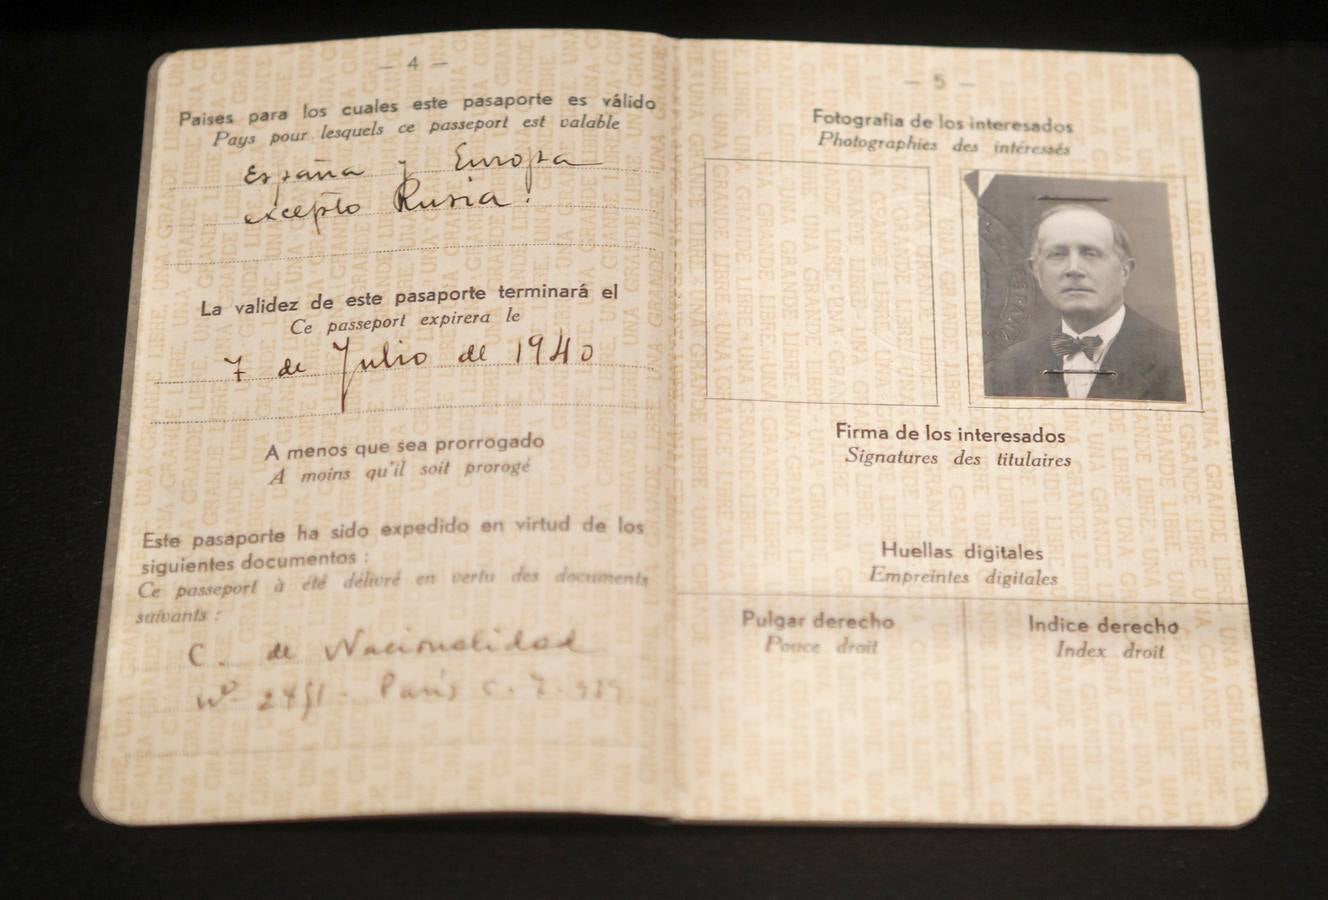 — 4 —
Paises para los cuales este pasaporte es válido
Pays pour lesquels ce passeport est valable
España y Europa
excepto Rusia.
La validez de este pasaporte terminará el
Ce passeport expirera le
7 de Julio de 1940
A menos que sea prorrogado
A moins qu'il soit prorogé
Este pasaporte ha sido expedido en virtud de los
siguientes documentos :
Ce passeport à été délivré en vertu des documents
suivants :
C. de Nacionalidad
Nº Paris
— 5 —
Fotografia de los interesados
Photographies des intéressés
Firma de los interesados
Signatures des titulaires
Huellas digitales
Empreintes digitales
Pulgar derecho
Pouce droit
Indice derecho
Index droit
UNA GRANDE LIBRE